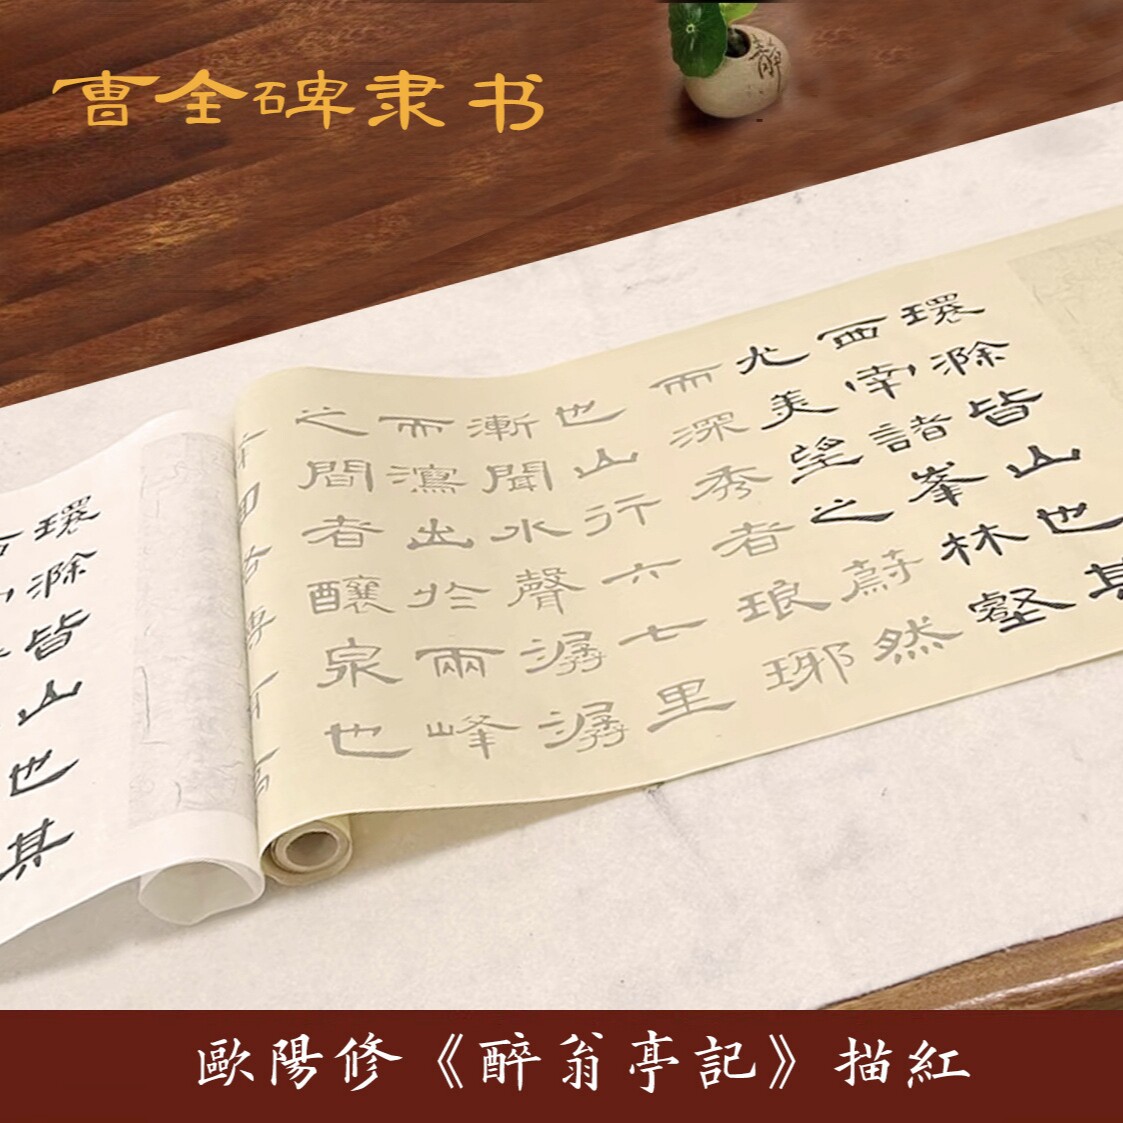 曹全碑隶书
環滁皆山也其
西南諸峯林壑
尤美望之蔚然
而深秀者琅琊
也山行六七里
漸聞水聲潺潺
而瀉出於兩峰
之間者釀泉也
環滁皆山也其
歐陽修《醉翁亭記》描紅